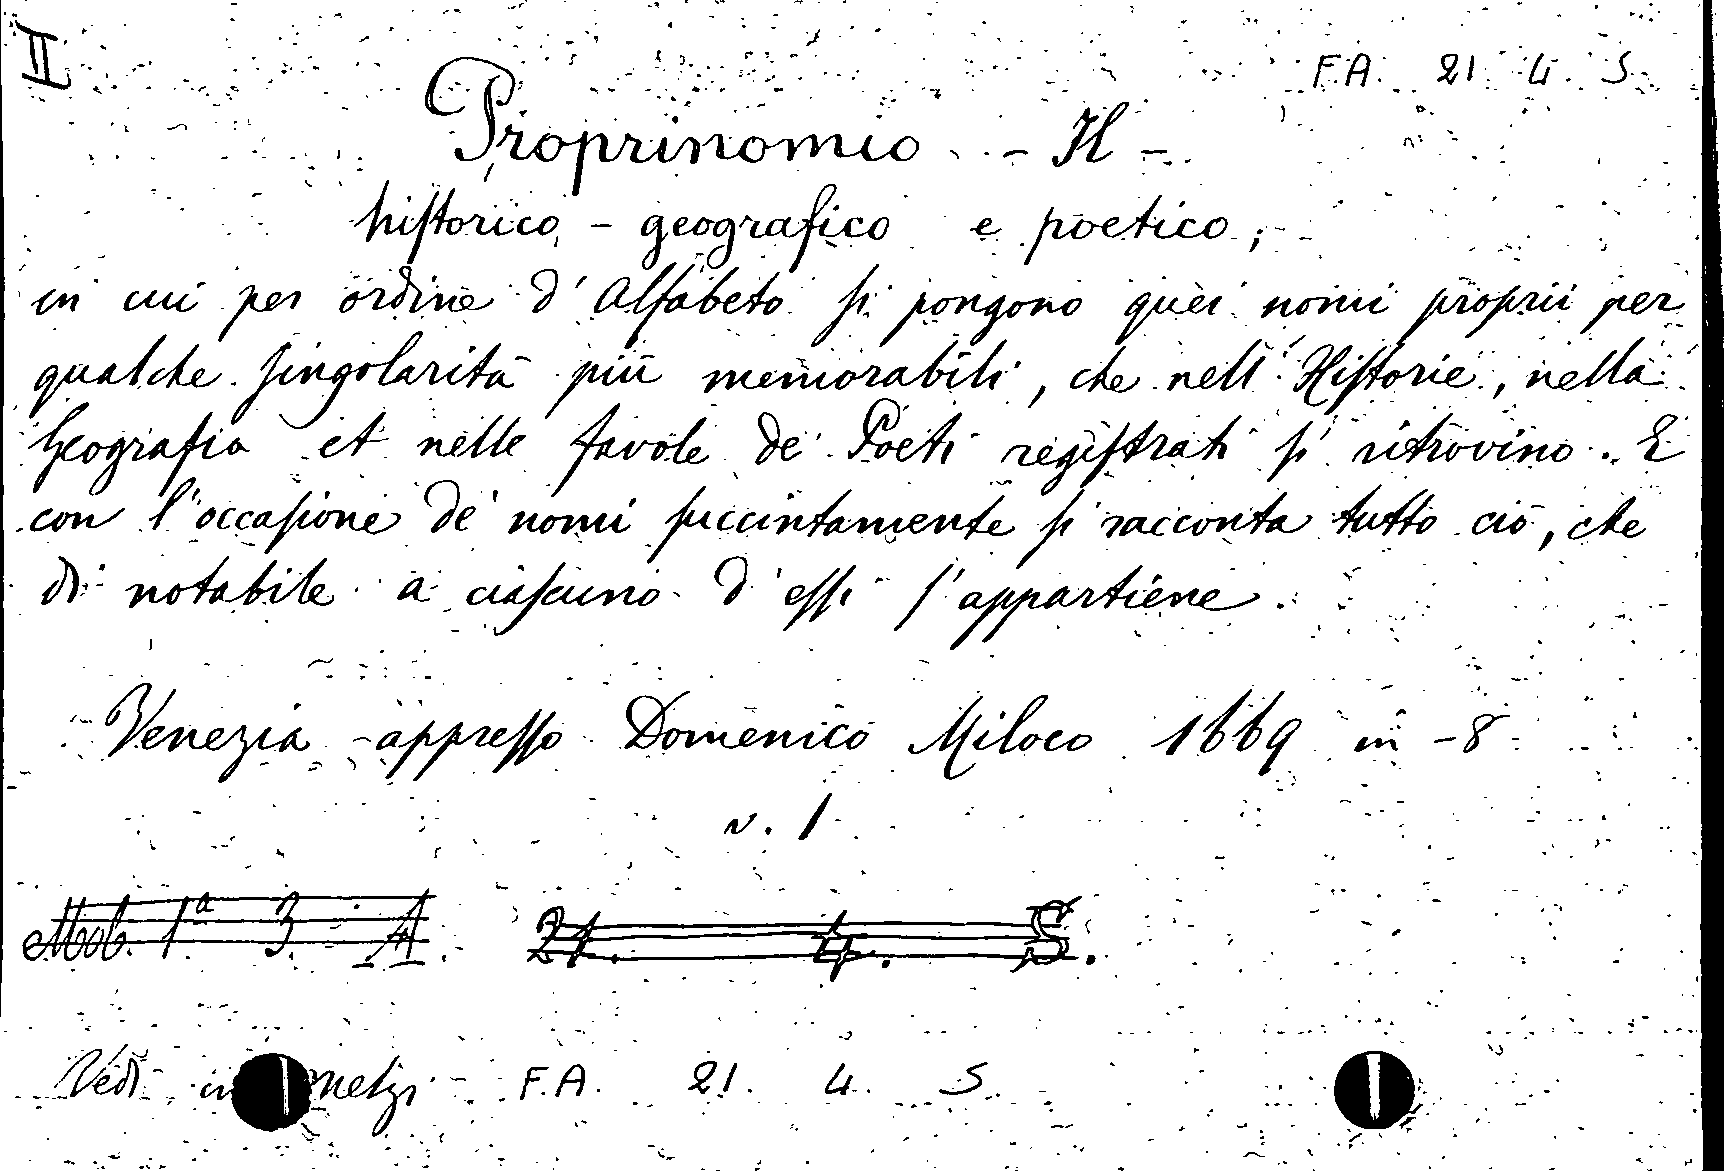 II
F.A. 21. 4. S.
Proprinomio - Il -
hiſtorico - geografico e poetico;
in cui per ordine d'Alfabeto ſi pongono quei nomi proprii per
qualche ſingolarità più memorabili, che nell'Hiſtorie, nella
Geografia et nelle favole de' Poeti regiſtrati ſi ritrovino. E
con l'occaſione de' nomi ſuccintamente ſi racconta tutto ciò, che
di notabile a ciaſcuno d'eſſi ſ'appartiene.
Venezia appreſſo Domenico Miloco 1669 in -8
v. 1
Mob. 1ª 3. A. 21. 4. S.
Vedi in F.A. 21. 4. S.